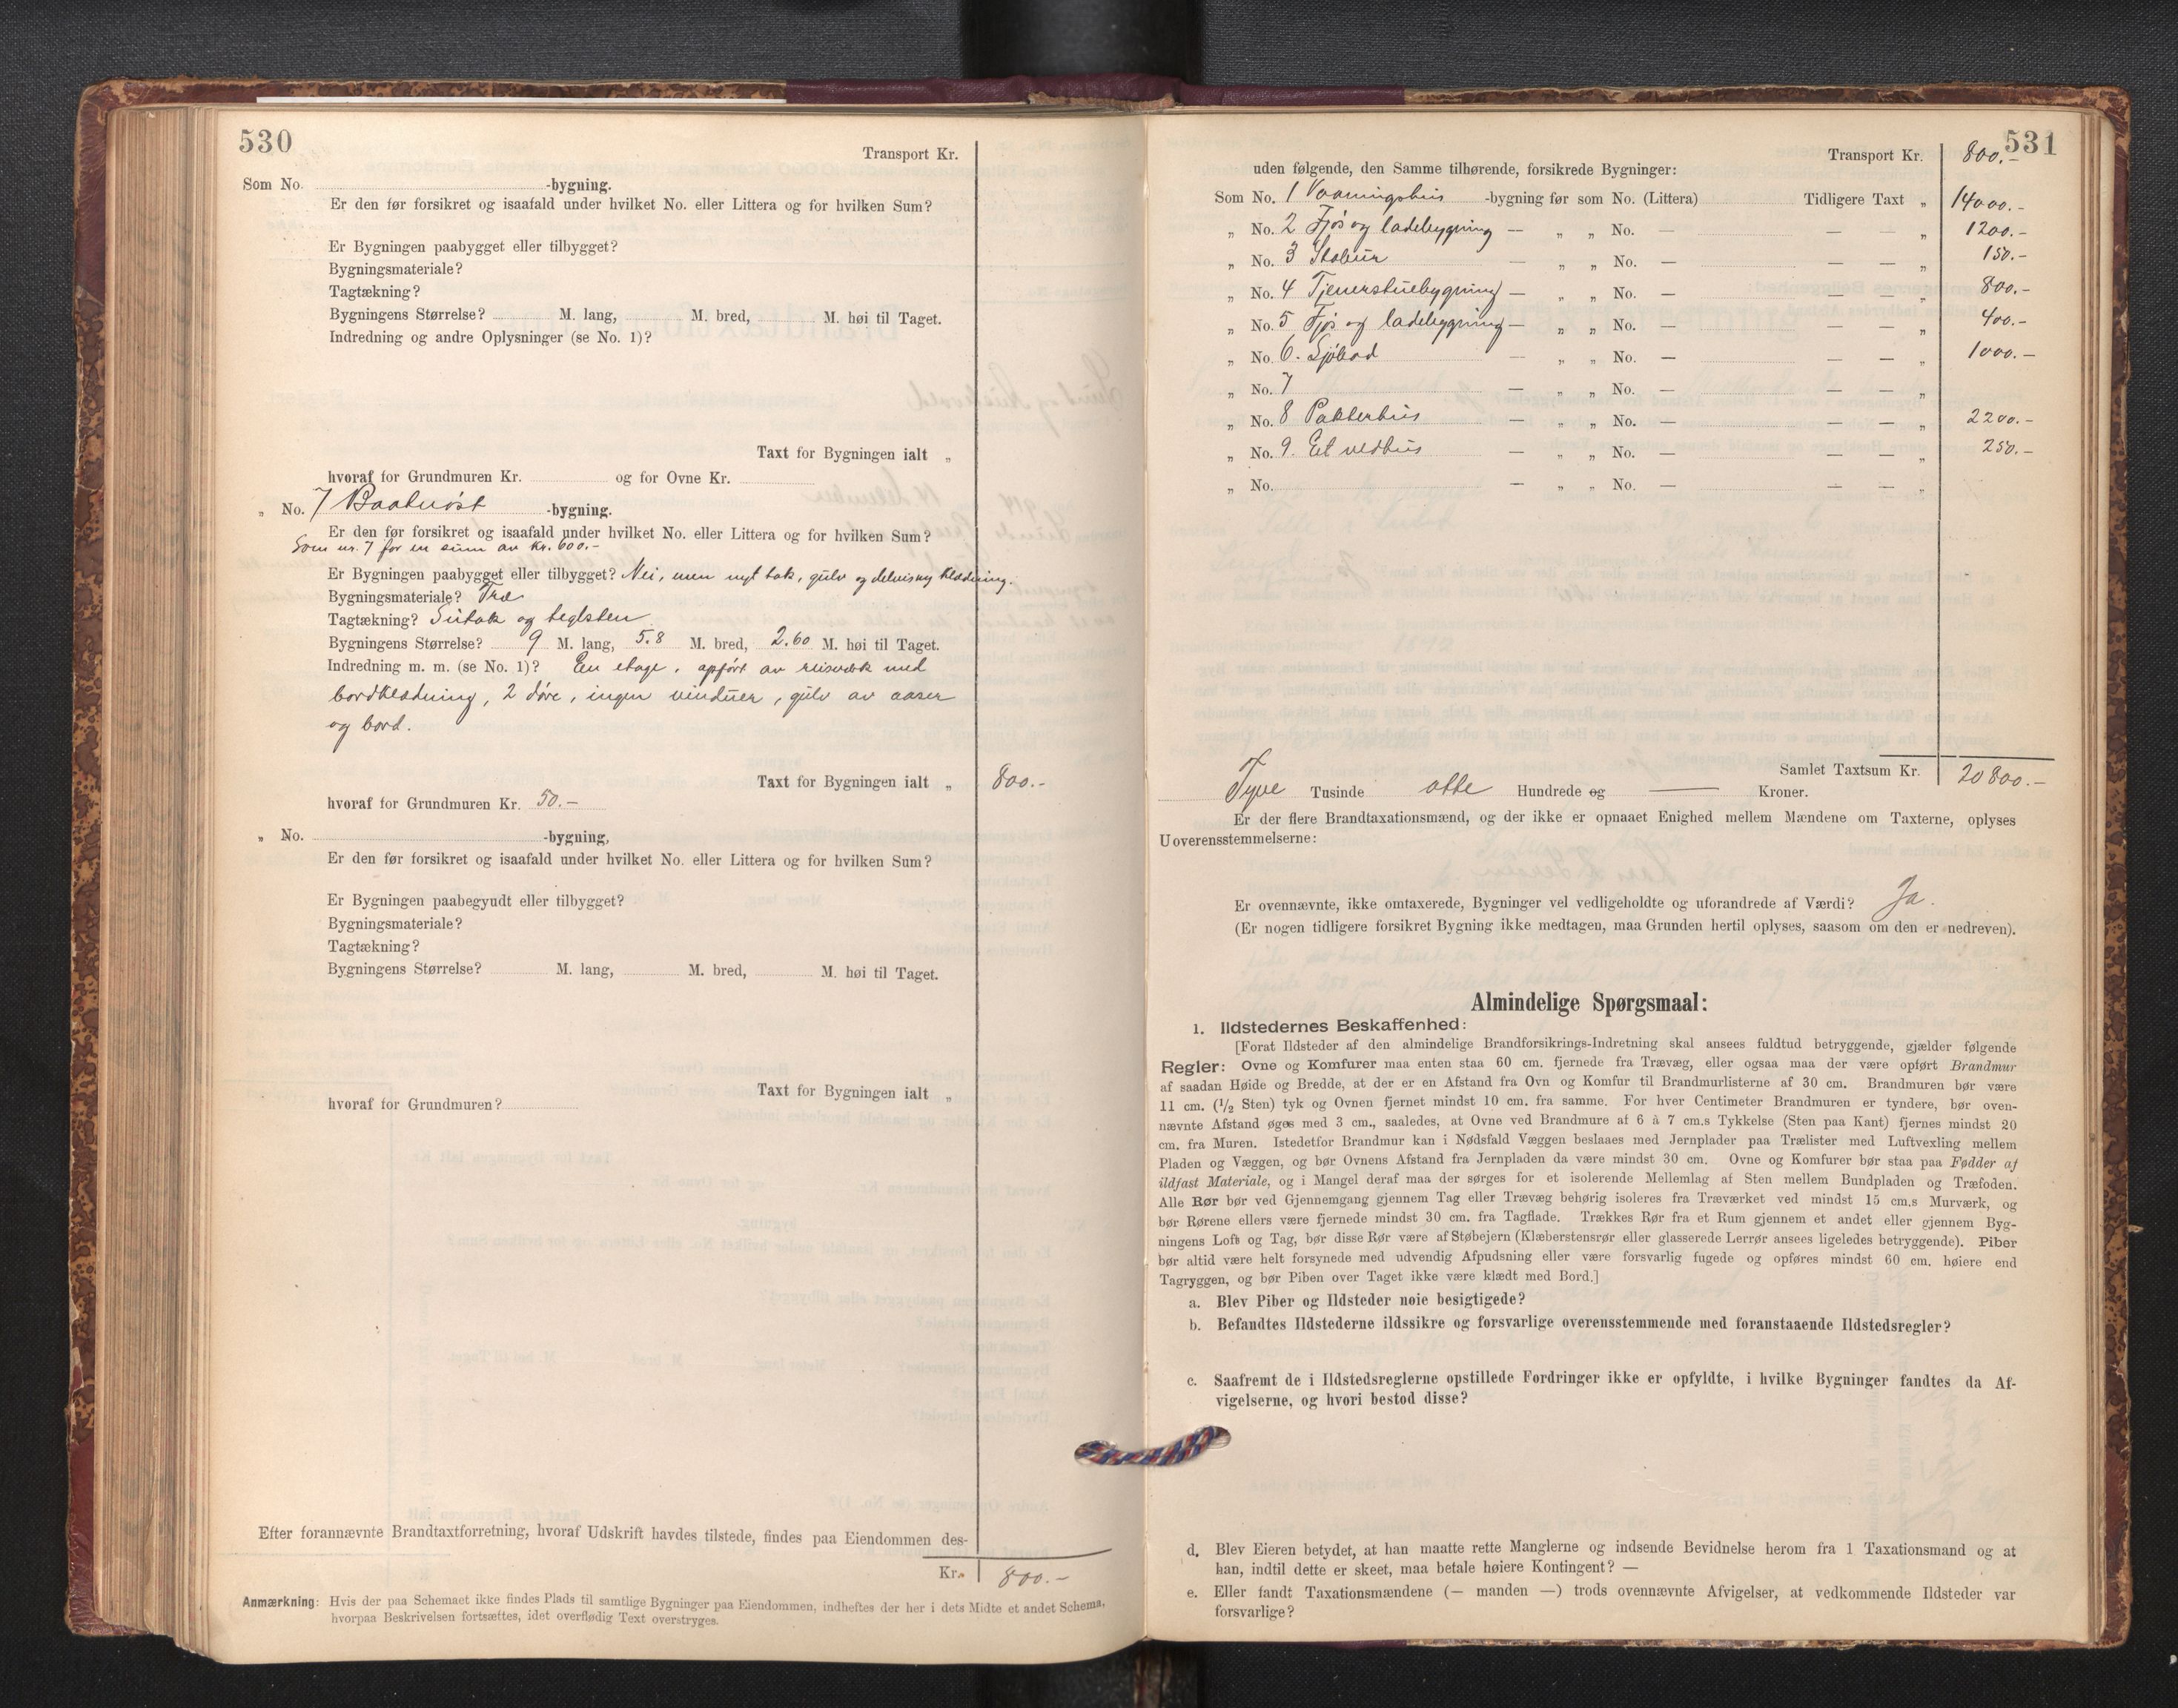 530
Transport Kr.
Som No. -bygning.
Er den før forsikret og isaafald under hvilket No. eller Littera og for hvilken Sum?
Er Bygningen paabygget eller tilbygget?
Bygningsmateriale?
Tagtækning?
Bygningens Størrelse? M. lang, M. bred, M. høi til Taget.
Indredning og andre Oplysninger (se No. 1)?
Taxt for Bygningen ialt „
hvoraf for Grundmuren Kr. og for Ovne Kr.
„ No. 7 Baatnöst -bygning.
Er den før forsikret og isaafald under hvilket No. eller Littera og for hvilken Sum?
Som nr. 7 for en sum av kr. 600.-
Er Bygningen paabygget eller tilbygget? Nei, men nyt tak, gulv og delvis ny klædning.
Bygningsmateriale? Træ
Tagtækning? Sutak og teglsten
Bygningens Størrelse? 9 M. lang, 5.8 M. bred, 2.60 M. høi til Taget.
Indredning m. m. (se No. 1)? En etage, opført av reisverk med
bordklædning, 2 døre, ingen vinduer, gulv av aaser
og bord.
Taxt for Bygningen ialt „ 800.-
hvoraf for Grundmuren Kr. 50.-
„ No. -bygning,
Er den før forsikret og isaafald under hvilket No. eller Littera og for hvilken Sum?
Er Bygningen paabegyudt eller tilbygget?
Bygningsmateriale?
Tagtækning?
Bygningens Størrelse? M. lang, M. bred, M. høi til Taget.
Taxt for Bygningen ialt „
hvoraf for Grundmuren?
Efter forannævnte Brandtaxtforretning, hvoraf Udskrift havdes tilstede, findes paa Eiendommen des-
Kr. 800.-
Anmærkning: Hvis der paa Schemaet ikke findes Plads til samtlige Bygninger paa Eiendommen, indheftes der her i dets Midte et andet Schema,
hvorpaa Beskrivelsen fortsættes, idet overflødig Text overstryges.
531
Transport Kr. 800.-
uden følgende, den Samme tilhørende, forsikrede Bygninger:
Som No. 1 Vaaningshus -bygning før som No. (Littera) Tidligere Taxt „ 14000.-
„ No. 2 Fjøs og ladebygning — „ „ No. — — — „ 1200.-
„ No. 3 Stabur — „ „ No. — — — „ 150.-
„ No. 4 Tjenerstuebygning — „ „ No. — — — „ 800.-
„ No. 5 Fjøs og ladebygning — „ „ No. — — — „ 400.-
„ No. 6. Sjøbod — „ „ No. — — — „ 1000.-
„ No. 7 — „ „ No. — — — „
„ No. 8 Pakkerhus — „ „ No. — — — „ 2200.-
„ No. 9. Et vedhus — „ „ No. — — — „ 250.-
„ No. — „ „ No. — — — „
Samlet Taxtsum Kr. 20800.-
Tyve Tusinde otte Hundrede og — Kroner.
Er der flere Brandtaxationsmænd, og der ikke er opnaaet Enighed mellem Mændene om Taxterne, oplyses
Uoverensstemmelserne:
Er ovennævnte, ikke omtaxerede, Bygninger vel vedligeholdte og uforandrede af Værdi? Ja.
(Er nogen tidligere forsikret Bygning ikke medtagen, maa Grunden hertil oplyses, saasom om den er nedreven).
Almindelige Spørgsmaal:
1. Ildstedernes Beskaffenhed:
[Forat Ildsteder af den almindelige Brandforsikrings-Indretning skal ansees fuldtud betryggende, gjælder følgende
Regler: Ovne og Komfurer maa enten staa 60 cm. fjernede fra Trævæg, eller ogsaa maa der være opført Brandmur
af saadan Høide og Bredde, at der er en Afstand fra Ovn og Komfur til Brandmurlisterne af 30 cm. Brandmuren bør være
11 cm. (1/2 Sten) tyk og Ovnen fjernet mindst 10 cm. fra samme. For hver Centimeter Brandmuren er tyndere, bør oven-
nævnte Afstand øges med 3 cm., saaledes, at Ovne ved Brandmure af 6 à 7 cm.s Tykkelse (Sten paa Kant) fjernes mindst 20
cm. fra Muren. Istedetfor Brandmur kan i Nødsfald Væggen beslaaes med Jernplader paa Trælister med Luftvexling mellem
Pladen og Væggen, og bør Ovnens Afstand fra Jernpladen da være mindst 30 cm. Ovne og Komfurer bør staa paa Fødder af
ildfast Materiale, og i Mangel deraf maa der sørges for et isolerende Mellemlag af Sten mellem Bundpladen og Træfoden.
Alle Rør bør ved Gjennemgang gjennem Tag eller Trævæg behørig isoleres fra Træværket ved mindst 15 cm.s Murværk, og
bør Rørene ellers være fjernede mindst 30 cm. fra Tagflade. Trækkes Rør fra et Rum gjennem et andet eller gjennem Byg-
ningens Loft og Tag, bør disse Rør være af Støbejern (Klæberstensrør eller glasserede Lerrør ansees ligeledes betryggende). Piber
bør altid være helt forsynede med udvendig Afpudsning eller være forsvarlig fugede og opføres mindst 60 cm. høiere end
Tagryggen, og bør Piben over Taget ikke være klædt med Bord.]
a. Blev Piber og Ildsteder nøie besigtigede?
b. Befandtes Ildstederne ildssikre og forsvarlige overensstemmende med foranstaaende Ildstedsregler?
c. Saafremt de i Ildstedsreglerne opstillede Fordringer ikke er opfyldte, i hvilke Bygninger fandtes da Af-
vigelserne, og hvori bestod disse?
d. Blev Eieren betydet, at han maatte rette Manglerne og indsende Bevidnelse herom fra 1 Taxationsmand og at
han, indtil dette er skeet, maa betale høiere Kontingent? —
e. Eller fandt Taxationsmændene (— manden —) trods ovennævnte Afvigelser, at vedkommende Ildsteder var
forsvarlige?